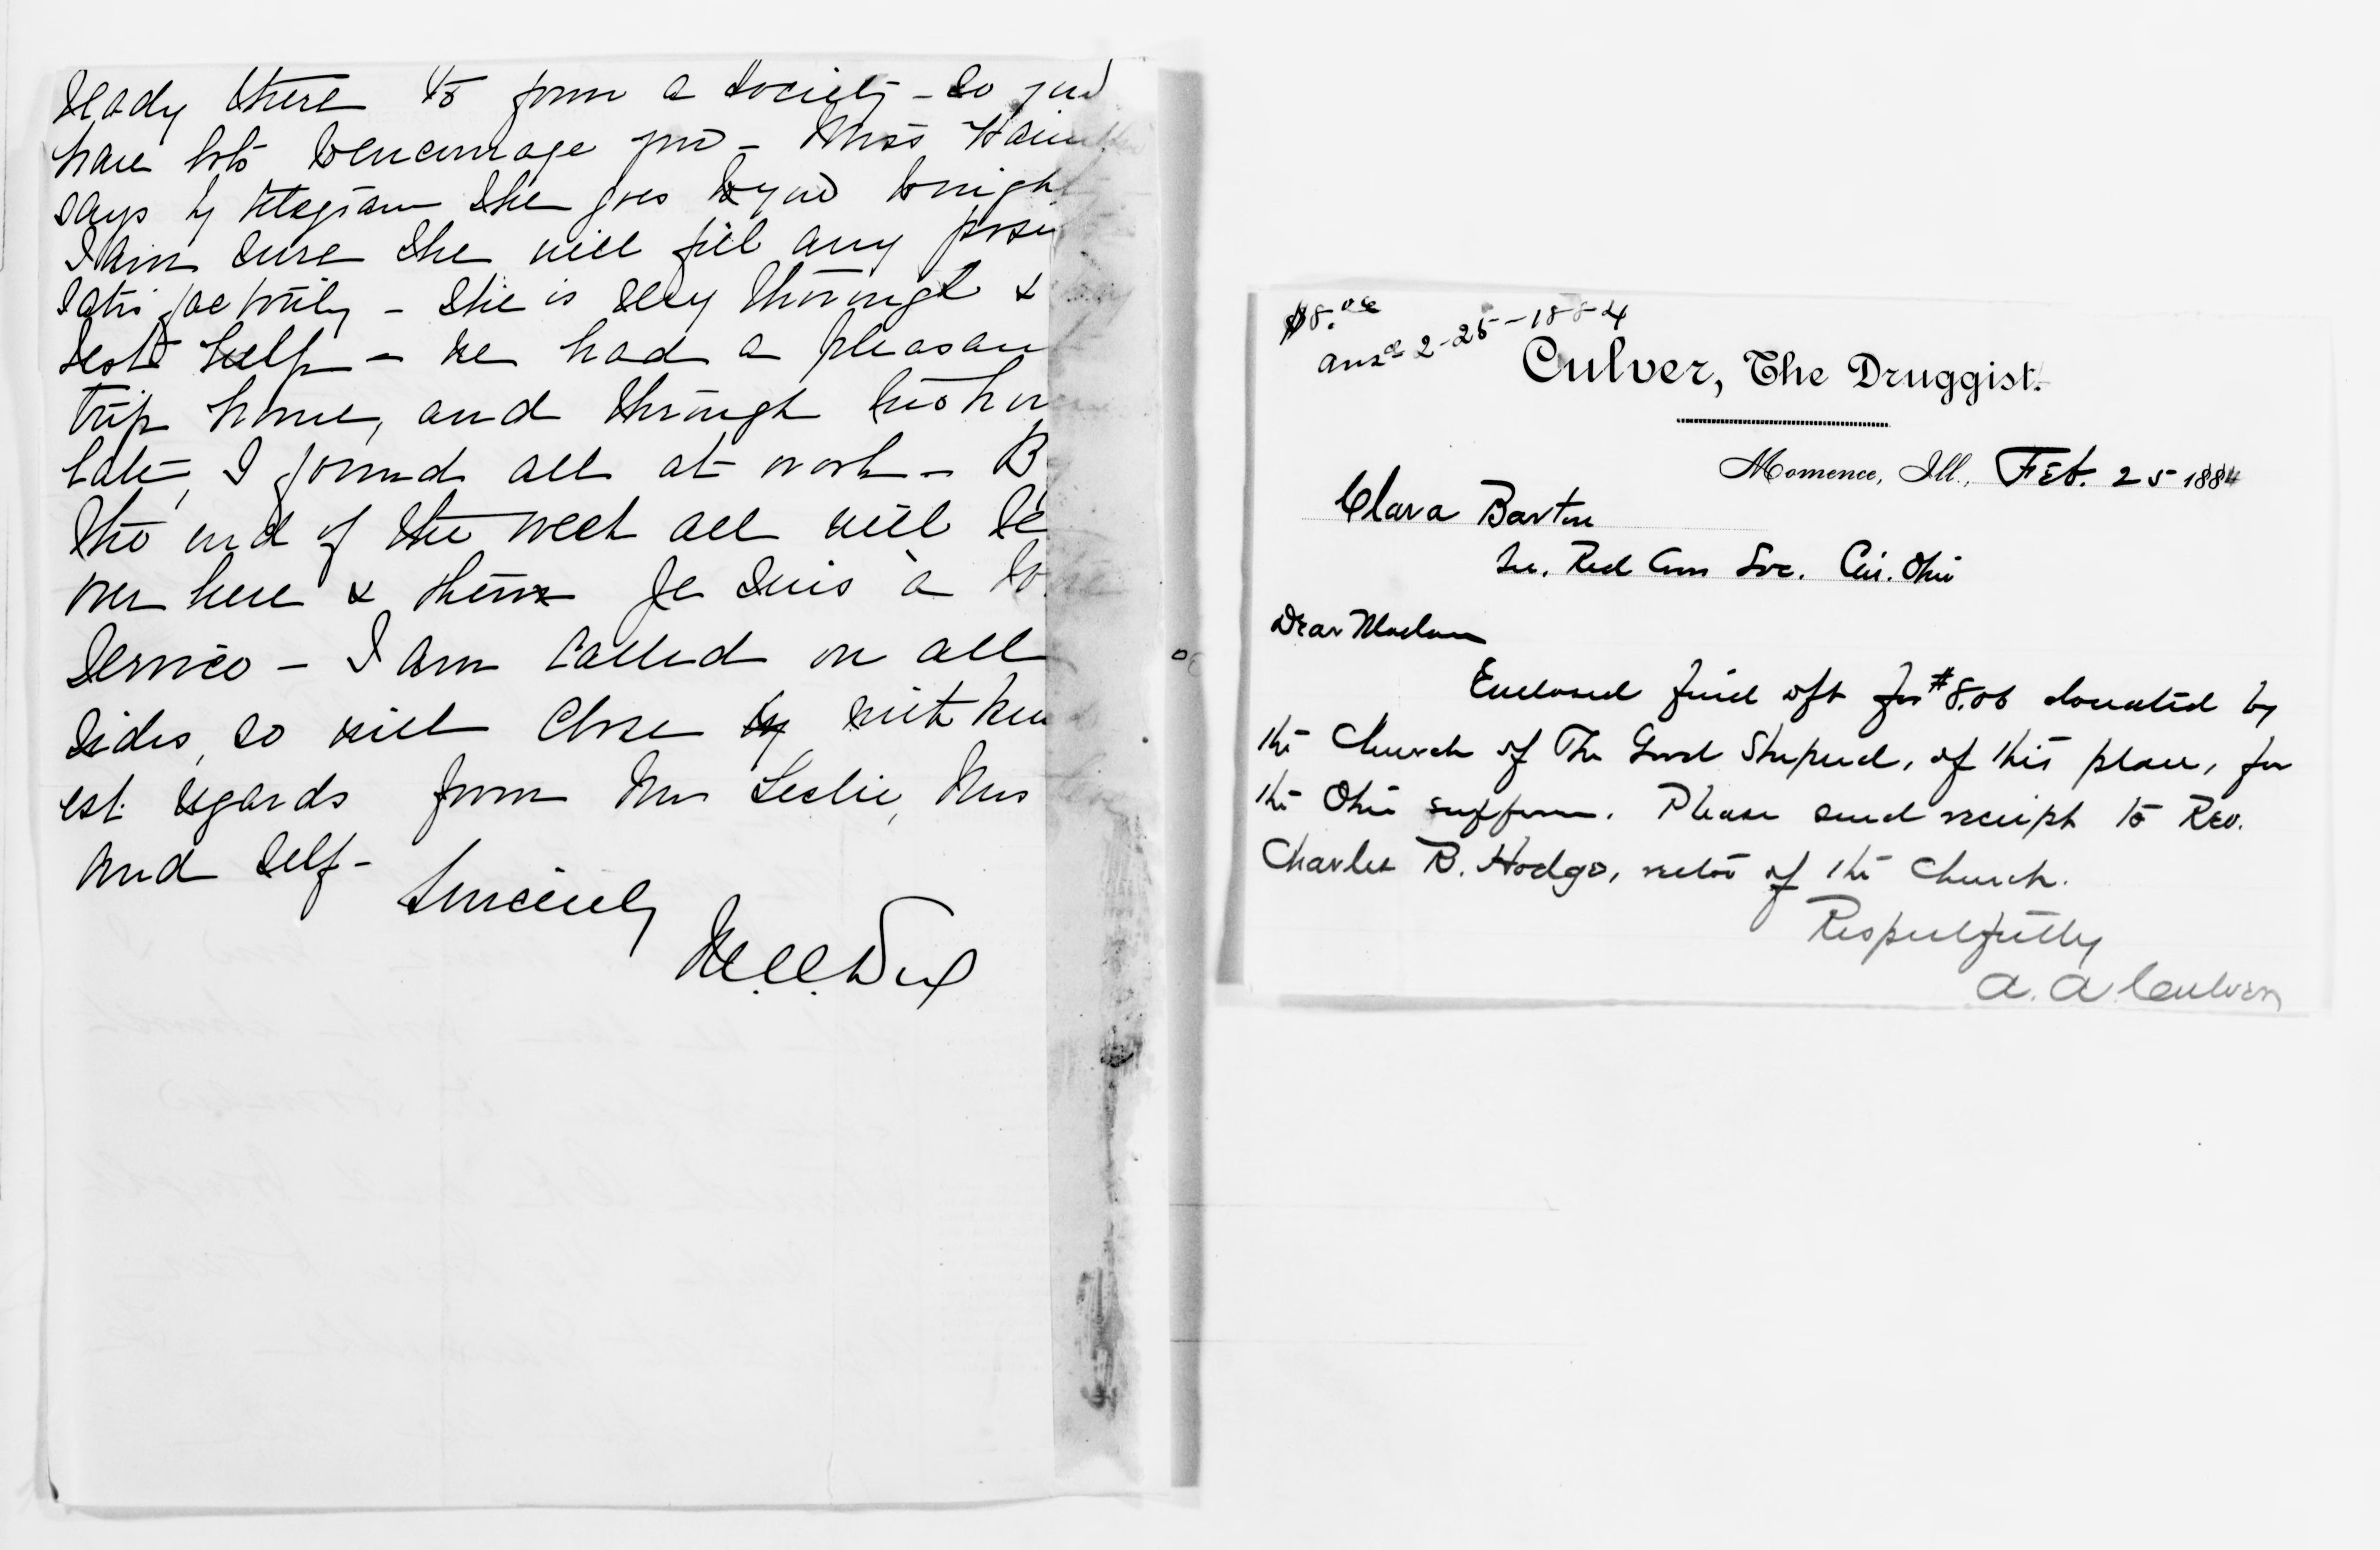 ready there to form a society - so you
have lots to encourage you - Miss
says by telegram she goes to you tonight
I am sure she will fill any
satisfactorily - she is very thorough &
best help - We had a pleasant
trip home, and through two hours
late, I found all at work - By
the end of the week all will be
over here & then Je suis à votre
Service - I am called on all
sides, so will close with kind
est regards from Mr Leslie, Mrs
and self -
Sincerely
$8.00
ansd 2-25-1884
Culver, The Druggist.
Momence, Ill., Feb. 25 1884
Clara Barton
Red Soc. Cin. Ohio
Dear Madam
Enclosed find dft for $8.00 donated by
the Church of The Good Sheperd, of this place, for
the Ohio sufferers. Please send receipt to Rev.
Charles B. Hodge, rector of the Church.
Respectfully
A. A. Culver